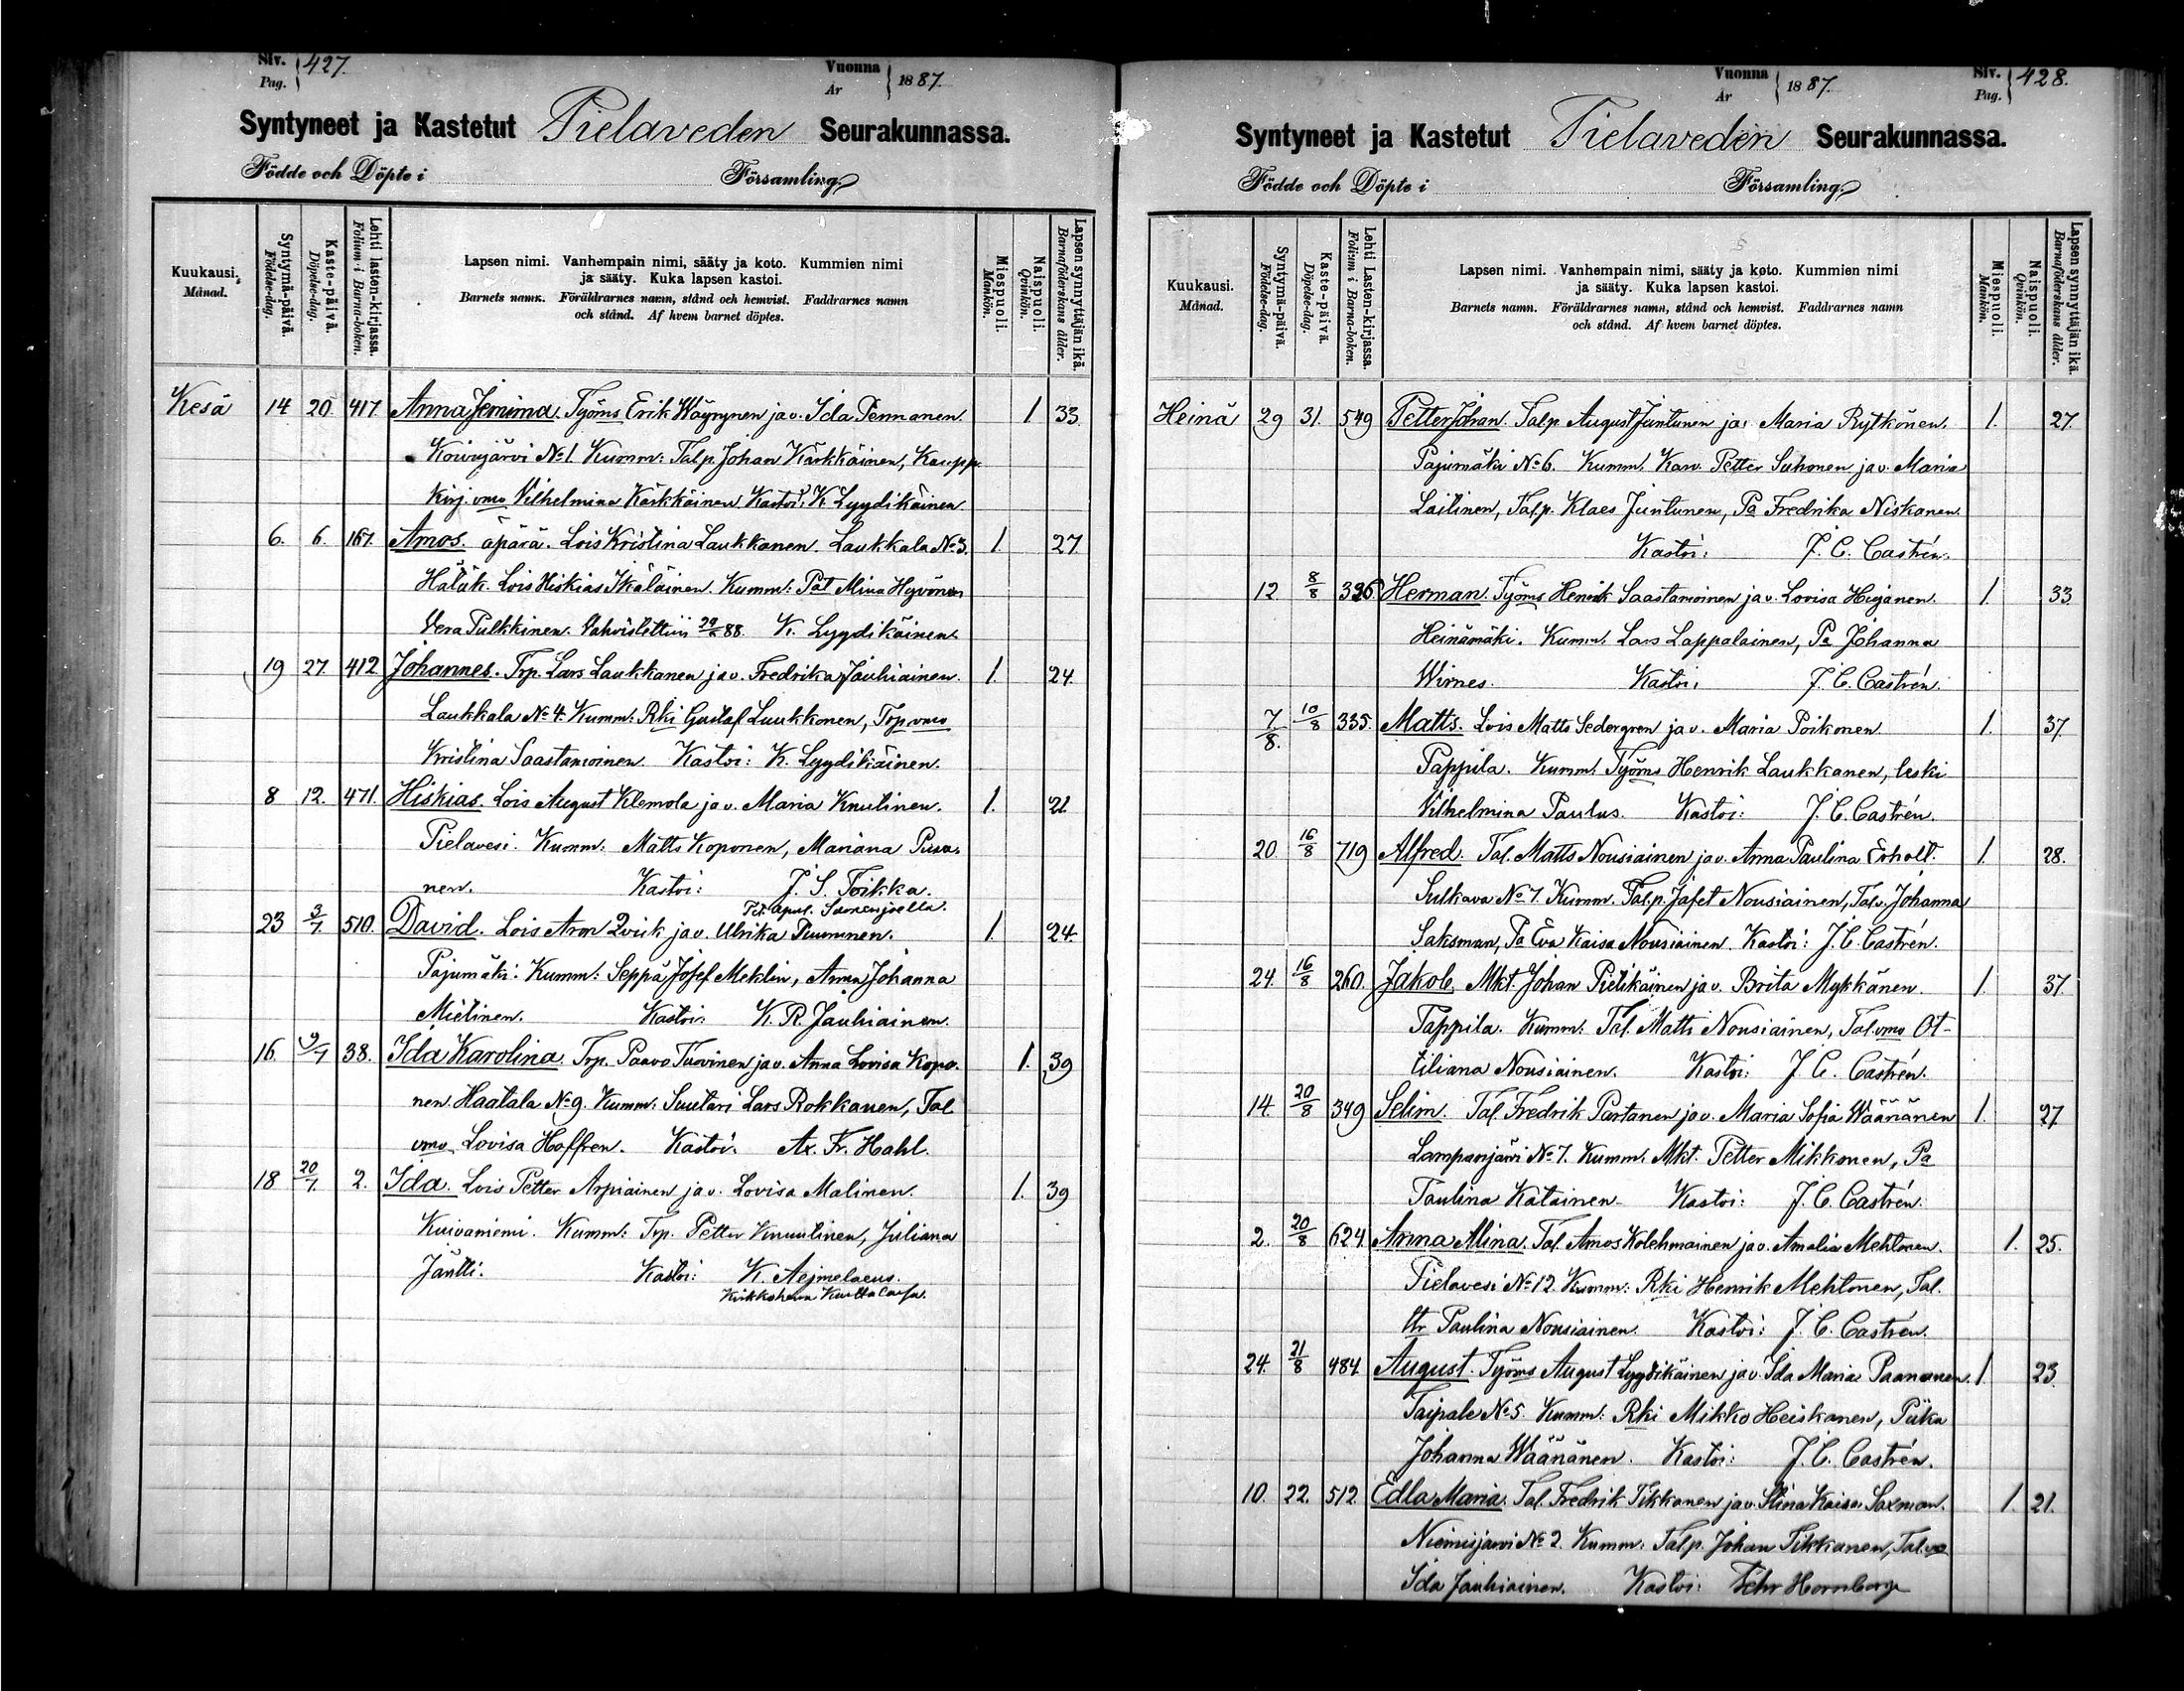 Siv. 427.
Pag.
Vuonna 1887.
År
Syntyneet ja Kastetut Pielaveden Seurakunnassa.
Födde och Döpte i Församling.
Kuukausi. Månad.
Syntymä-päivä. Födelse-dag.
Kaste-päivä. Döpelse-dag.
Lehti lasten-kirjassa. Folium i Barna-boken.
Lapsen nimi. Vanhempain nimi, sääty ja koto. Kummien nimi
ja sääty. Kuka lapsen kastoi.
Barnets namn. Föräldrarnes namn, stånd och hemvist. Faddrarnes namn
och stånd. Af hvem barnet döptes.
Miespuoli. Mankön.
Naispuoli. Qvinkön.
Lapsen synnyttäjän ikä. Barnaföderskans ålder.
Kesä 14 20 417 Anna Jemima. Työms Erik Wäyrynen ja v. Ida Pennanen. 1 33.
Koivujärvi No 1. Kumm: Talp. Johan Kärkkäinen, Kaupp.
kirj. vmo Vilhelmina Kärkkäinen Kastoi: K. Lyydikäinen
6. 6. 167. Amos. äpärä. Lois Kristina Laukkanen. Laukkala No 3. 1. 27.
Lois Hiskias Ikäläinen. Kumm: Mina Hyvönen
Vera Pulkkinen. K. Lyydikäinen.
19 27. 412 Johannes. Trp. Lars Laukkanen ja v. Fredrika Jauhiainen. 1. 24.
Laukkala No 4. Kumm: Rki Gustaf Luukkonen, Trp vmo
Kristina Saastamoinen. Kastoi: K. Lyydikäinen.
8 12. 471. Hiskias. Lois August Klemola ja v. Maria Knutinen. 1. 21.
Pielavesi. Kumm: Matts Koponen, Mariana Pura-
nen. Kastoi: J. S. Toikka.
23 3/7 510. David. Lois Aron Qvick ja v. Ulrika Puumunen. 1. 24.
Pajumäki. Kumm: Seppä Josef Meklin, Anna Johanna
Mietinen. Kastoi: K. R. Jauhiainen.
16. 9/7 38. Ida Karolina. Trp. Paavo Tuovinen ja v. Anna Lovisa Kopo- 1. 39
nen. Haatala No 9. Kumm: Suutari Lars Rokkanen, Tal
vmo Lovisa Hoffren. Kastoi: Ax. Fr. Hahl.
18 20/7 2. Ida. Lois Petter Arpiainen ja v. Lovisa Malinen. 1. 39
Kuivaniemi. Kumm: Trp. Petter Knuutinen, Juliana
Jäntti. Kastoi: K. Aejmelaeus.
Siv. 428.
Pag.
Vuonna 1887.
År
Syntyneet ja Kastetut Pielaveden Seurakunnassa.
Födde och Döpte i Församling.
Kuukausi. Månad.
Syntymä-päivä. Födelse-dag.
Kaste-päivä. Döpelse-dag.
Lehti Lasten-kirjassa. Folium i Barna-boken.
Lapsen nimi. Vanhempain nimi, sääty ja koto. Kummien nimi
ja sääty. Kuka lapsen kastoi.
Barnets namn. Föräldrarnes namn, stånd och hemvist. Faddrarnes namn
och stånd. Af hvem barnet döptes.
Miespuoli. Mankön.
Naispuoli. Qvinkön.
Lapsen synnyttäjän ikä. Barnaföderskans ålder.
Heinä 29 31. 549 Petter Johan. Talp August Juntunen ja v Maria Rytkönen. 1. 27.
Pajumäki No 6. Kumm. Petter Suhonen ja v. Maria
Laitinen, Talp. Klaes Juntunen, Pa Fredrika Niskanen.
Kastoi: J. C. Castrén.
12. 8/8 Herman. Työms Henrik Saastamoinen ja v. Lovisa Hujanen. 1. 33.
Heinämäki. Kumm. Lars Lappalainen, Pa Johanna
Wirnes. Kastoi: J. C. Castrén.
7/8. 10/8 335. Matts. Lois Matts Sedergren ja v. Maria Poikonen 1. 37.
Pappila. Kumm. Työms Henrik Laukkanen, leski
Vilhelmina Paulus. Kastoi: J. C. Castrén.
20. 16/8 719 Alfred. Tal. Matts Nousiainen ja v. Anna Paulina Erholt. 1. 28.
Sulkava No 7. Kumm. Talp. Jafet Nousiainen, Talv. Johanna
Saksman, Pa Eva Kaisa Nousiainen. Kastoi: J. C. Castrén.
24. 16/8 260. Jakob. Mkt. Johan Pietikäinen ja v. Brita Mykkänen. 1. 37.
Pappila. Kumm: Tal. Matti Nousiainen, Tal. vmo Ot-
tiliana Nousiainen. Kastoi: J. C. Castrén.
14. 20/8 349 Selim. Tal. Fredrik Partanen ja v. Maria Sofia Wäänänen 1. 27.
Lampaanjärvi No 7. Kumm. Mkt. Petter Mikkonen, Pa
Paulina Katainen. Kastoi: J. C. Castrén.
2. 20/8 624 Anna Alina. Tal. Amos Kolehmainen ja v. Amalia Mehtonen. 1. 25.
Pielavesi No 12. Kumm: Rki Henrik Mehtonen, Tal.
tr Paulina Nousiainen. Kastoi: J. C. Castrén.
24. 21/8 484. August. Työms August Lyydikäinen ja v. Ida Maria Paananen. 1. 23.
Taipale No 5. Kumm: Rki Mikko Heiskanen, Piika
Johanna Wäänänen. Kastoi: J. C. Castrén.
10. 22. 512. Edla Maria. Tal. Fredrik Tikkanen ja v. Stina Kaisa Saxman. 1. 21.
Niemisjärvi No 2. Kumm: Talp. Johan Tikkanen, Tal. vo
Ida Jauhiainen. Kastoi: Fehr Hornborg